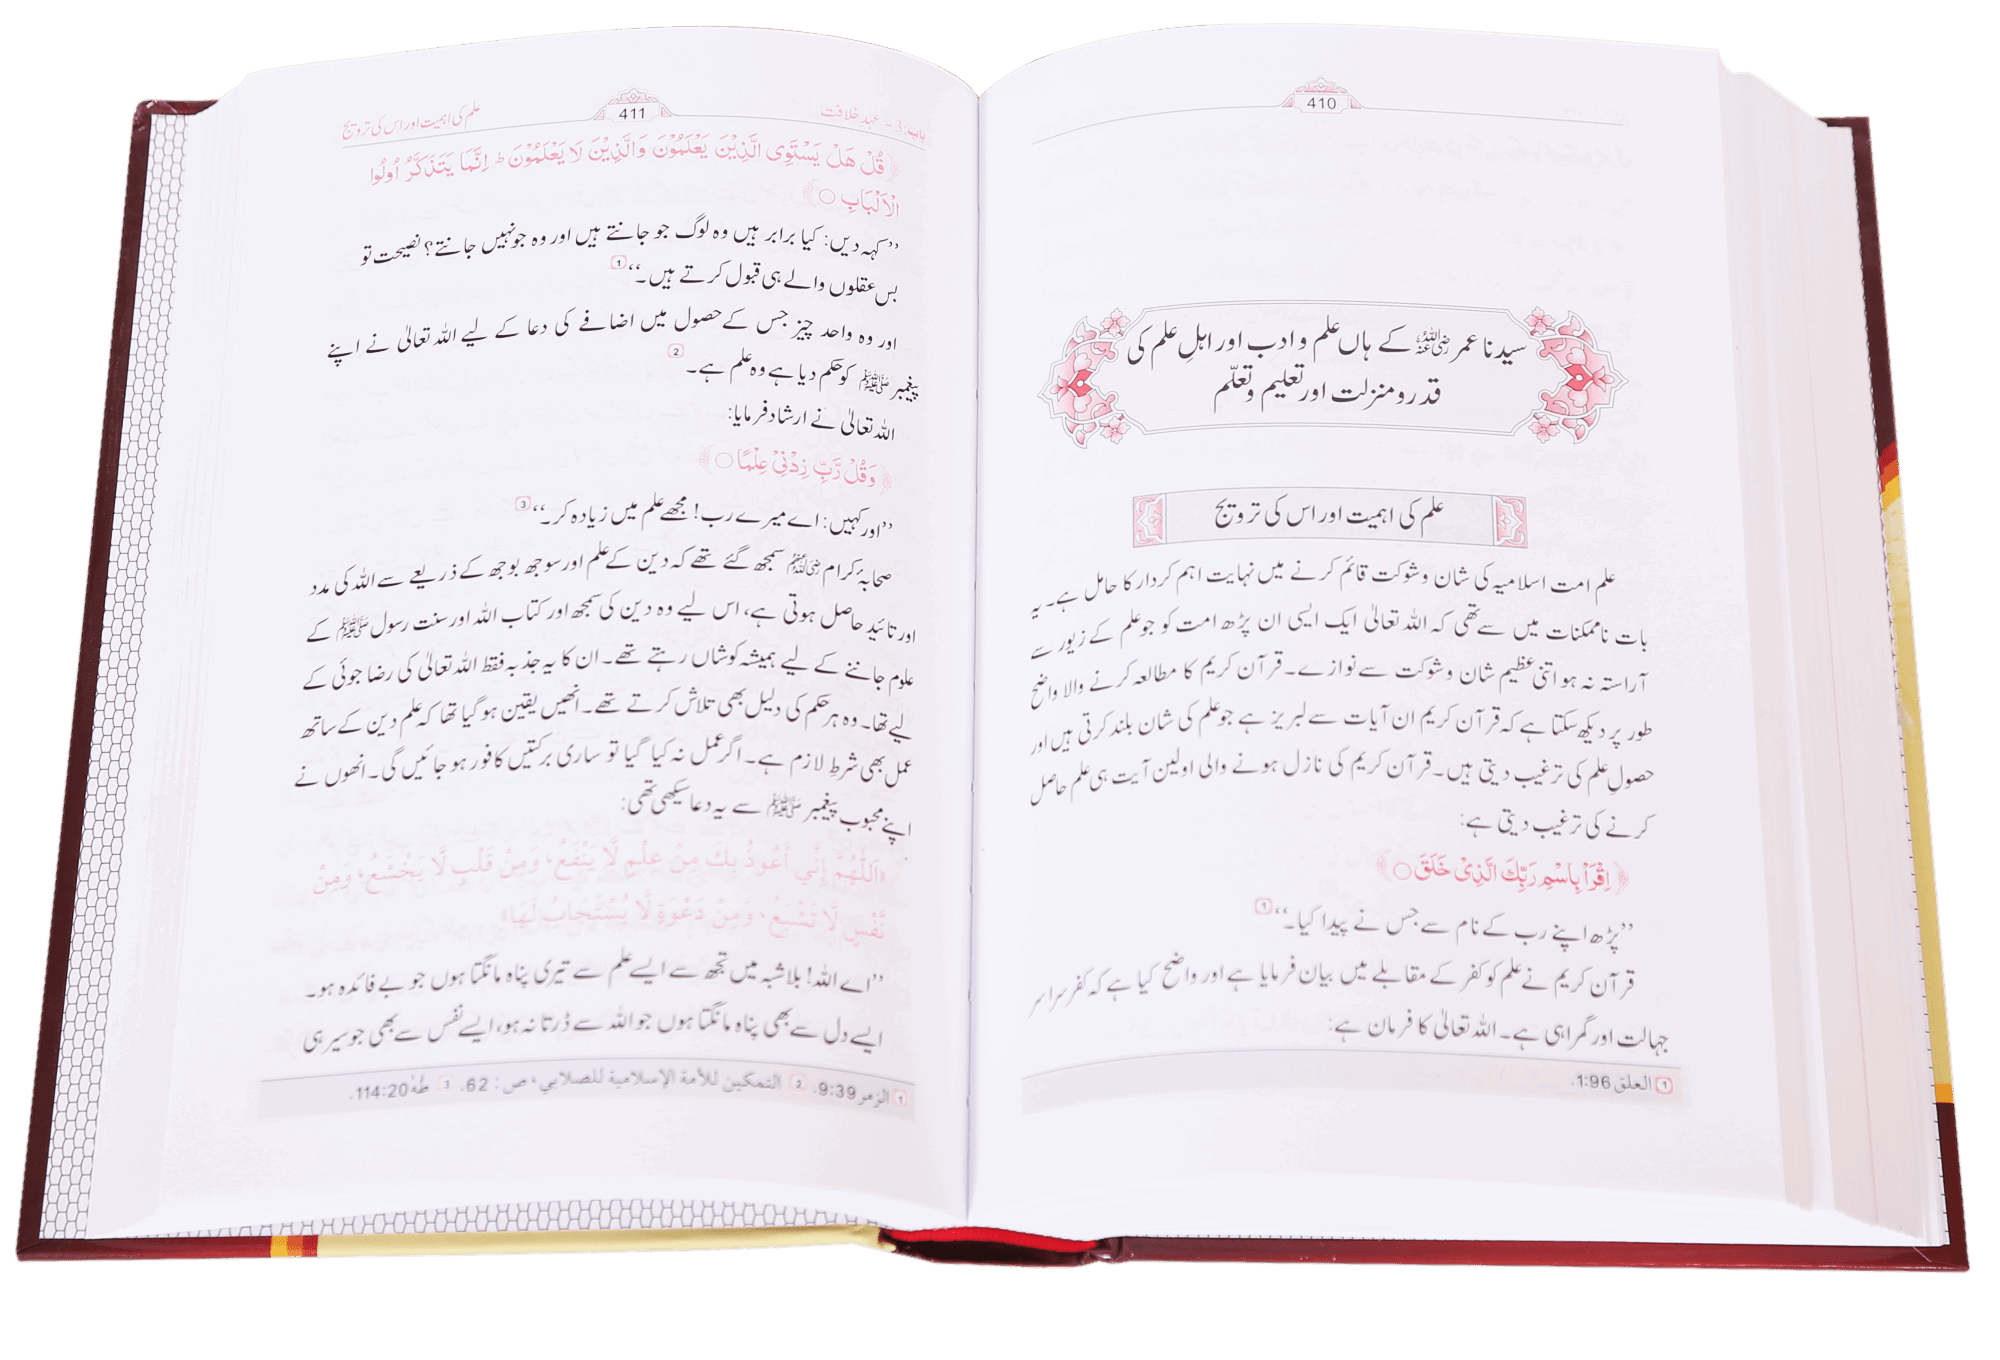 410
سیدنا عمر رضی اللہ عنہ کے ہاں علم و ادب اور اہلِ علم کی
قدرومنزلت اور تعلیم و تعلّم
علم کی اہمیت اور اس کی ترویج
علم امت اسلامیہ کی شان و شوکت قائم کرنے میں نہایت اہم کردار کا حامل ہے۔ یہ
بات ناممکنات میں سے تھی کہ اللہ تعالیٰ ایک ایسی ان پڑھ امت کو جو علم کے زیور سے
آراستہ نہ ہو اتنی عظیم شان و شوکت سے نوازے۔ قرآن کریم کا مطالعہ کرنے والا واضح
طور پر دیکھ سکتا ہے کہ قرآن کریم ان آیات سے لبریز ہے جو علم کی شان بلند کرتی ہیں اور
حصولِ علم کی ترغیب دیتی ہیں۔ قرآن کریم کی نازل ہونے والی اولین آیت ہی علم حاصل
کرنے کی ترغیب دیتی ہے:
﴿اِقْرَاْ بِاسْمِ رَبِّكَ الَّذِیْ خَلَقَ ○﴾
”پڑھ اپنے رب کے نام سے جس نے پیدا کیا۔“ 1
قرآن کریم نے علم کو کفر کے مقابلے میں بیان فرمایا ہے اور واضح کیا ہے کہ کفر سراسر
جہالت اور گمراہی ہے۔ اللہ تعالیٰ کا فرمان ہے:
1 العلق 1:96.
باب: 3 - عہد خلافت 411 علم کی اہمیت اور اس کی ترویج
﴿قُلْ هَلْ یَسْتَوِی الَّذِیْنَ یَعْلَمُوْنَ وَالَّذِیْنَ لَا یَعْلَمُوْنَ ؕ اِنَّمَا یَتَذَكَّرُ اُولُوا
الْاَلْبَابِ ○﴾
”کہہ دیں: کیا برابر ہیں وہ لوگ جو جانتے ہیں اور وہ جو نہیں جانتے؟ نصیحت تو
بس عقلوں والے ہی قبول کرتے ہیں۔“ 1
اور وہ واحد چیز جس کے حصول میں اضافے کی دعا کے لیے اللہ تعالیٰ نے اپنے
پیغمبر ﷺ کو حکم دیا ہے وہ علم ہے۔ 2
اللہ تعالیٰ نے ارشاد فرمایا:
﴿وَقُلْ رَّبِّ زِدْنِیْ عِلْمًا ○﴾
”اور کہیں: اے میرے رب! مجھے علم میں زیادہ کر۔“ 3
صحابۂ کرام رضی اللہ عنہم سمجھ گئے تھے کہ دین کے علم اور سوجھ بوجھ کے ذریعے سے اللہ کی مدد
اور تائید حاصل ہوتی ہے، اس لیے وہ دین کی سمجھ اور کتاب اللہ اور سنت رسول ﷺ کے
علوم جاننے کے لیے ہمیشہ کوشاں رہتے تھے۔ ان کا یہ جذبہ فقط اللہ تعالیٰ کی رضا جوئی کے
لیے تھا۔ وہ ہر حکم کی دلیل بھی تلاش کرتے تھے۔ انھیں یقین ہو گیا تھا کہ علم دین کے ساتھ
عمل بھی شرطِ لازم ہے۔ اگر عمل نہ کیا گیا تو ساری برکتیں کافور ہو جائیں گی۔ انھوں نے
اپنے محبوب پیغمبر ﷺ سے یہ دعا سیکھی تھی:
«اَللّٰهُمَّ إِنِّي أَعُوذُ بِكَ مِنْ عِلْمٍ لَّا يَنْفَعُ، وَمِنْ قَلْبٍ لَّا يَخْشَعُ، وَمِنْ
نَّفْسٍ لَّا تَشْبَعُ، وَمِنْ دَعْوَةٍ لَّا يُسْتَجَابُ لَهَا»
”اے اللہ! بلاشبہ میں تجھ سے ایسے علم سے تیری پناہ مانگتا ہوں جو بے فائدہ ہو۔
ایسے دل سے بھی پناہ مانگتا ہوں جو اللہ سے ڈرتا نہ ہو، ایسے نفس سے بھی جو سیر ہی
1 الزمر 9:39. 2 التمكين للأمة الإسلامية للصلابي، ص: 62. 3 طٰهٰ 114:20.